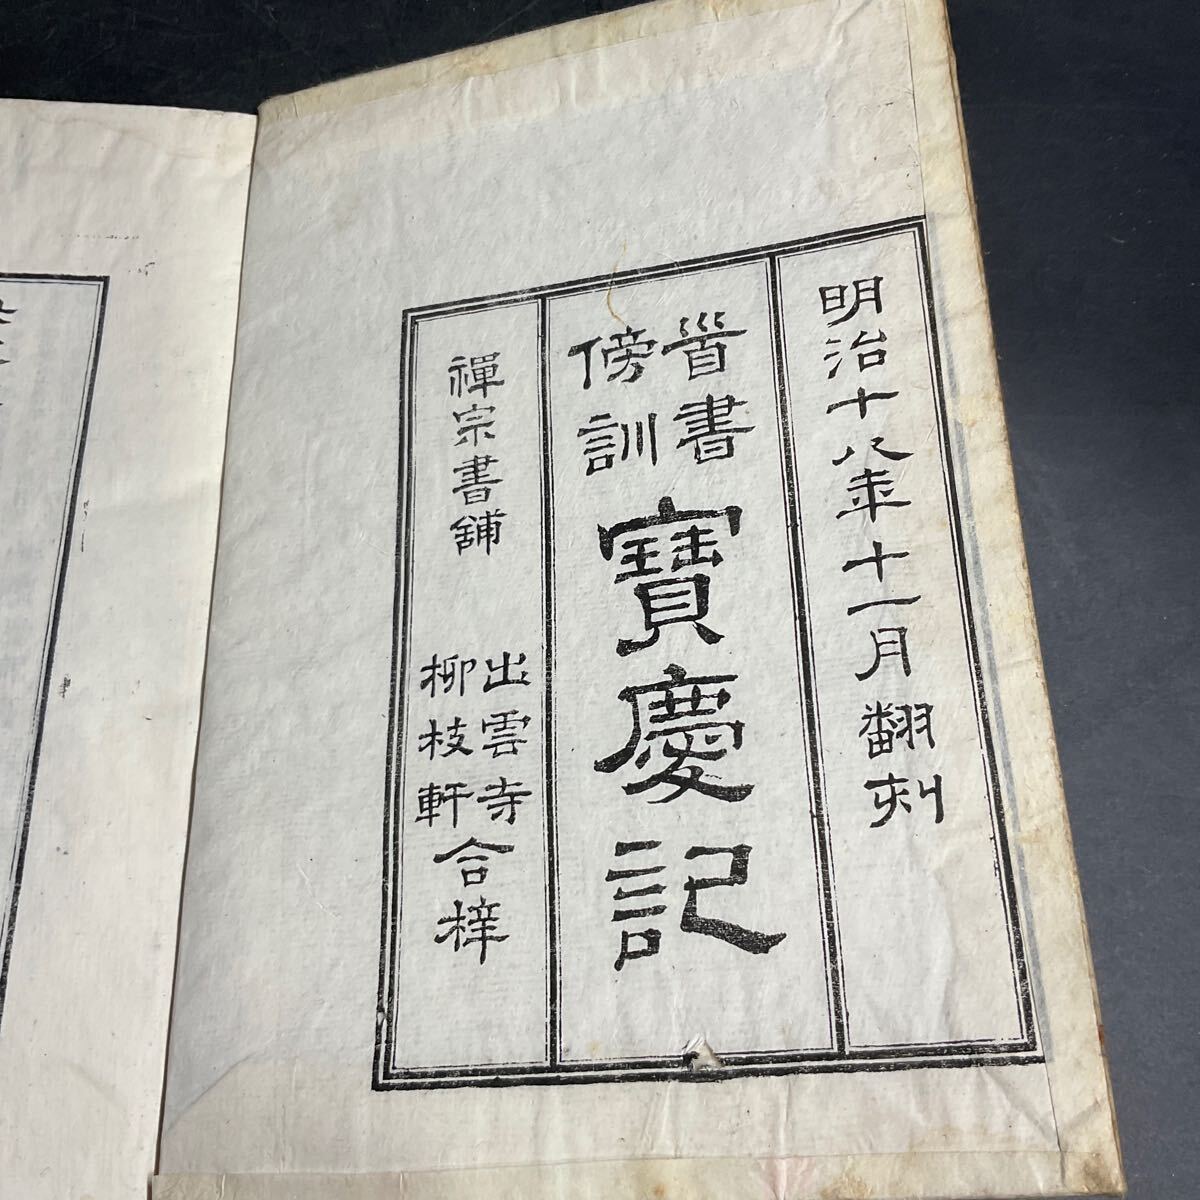 明治十八年十一月翻刻
首書
傍訓
寶慶記
禪宗書舗
出雲寺
柳枝軒
合梓